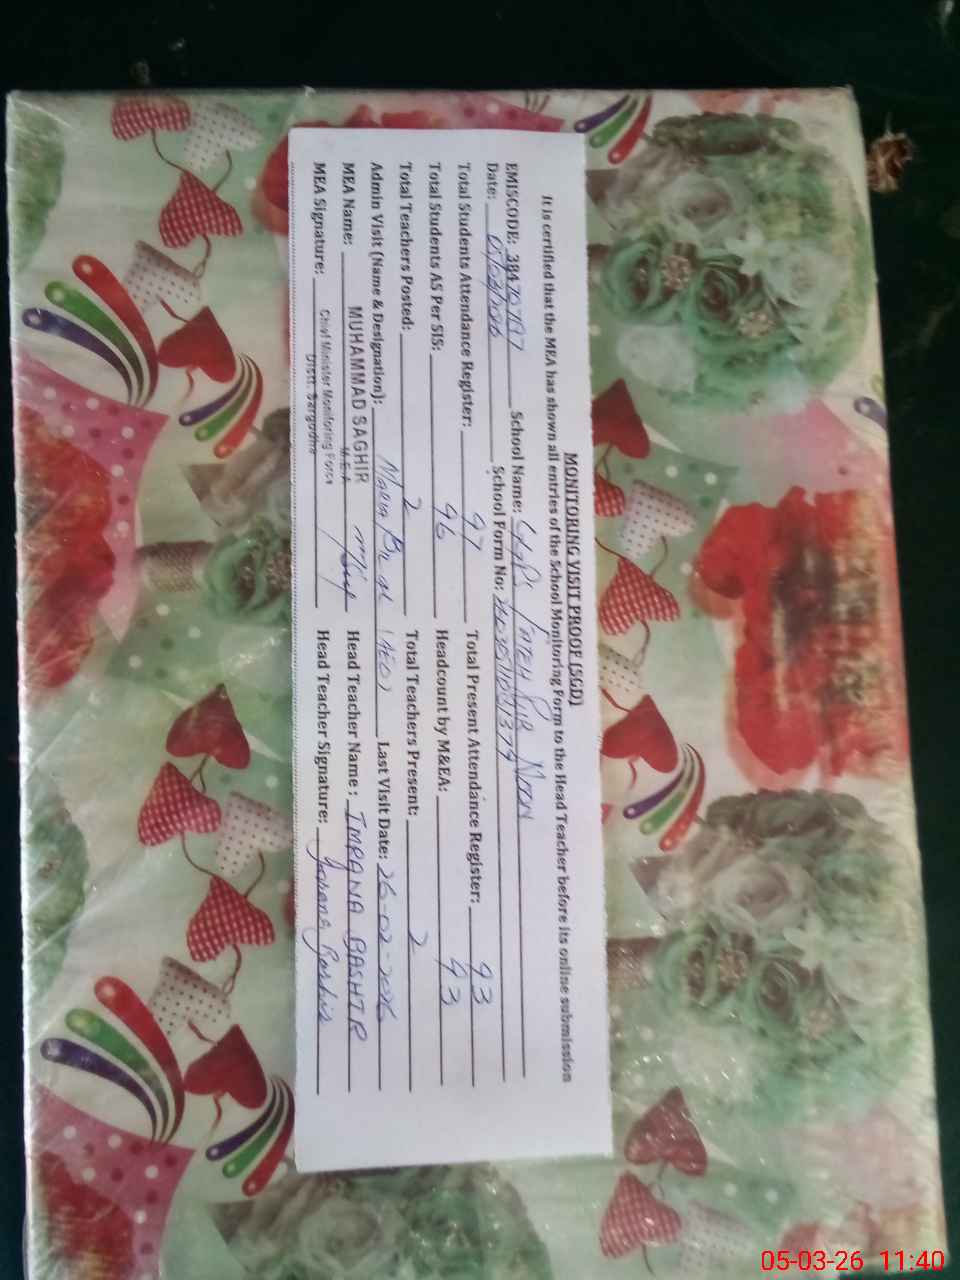 MONITORING VISIT PROOF (SGD)
It is certified that the MEA has shown all entries of the School Monitoring Form to the Head Teacher before its online submission
EMISCODE: 38470797 School Name: GGPS FATEH PUR NOON
Date: 05/03/2026 School Form No:
Total Students Attendance Register: 97 Total Present Attendance Register: 93
Total Students AS Per SIS: 96 Headcount by M&EA: 93
Total Teachers Posted: 2 Total Teachers Present: 2
Admin Visit (Name & Designation): Maria Bilal (AEO) Last Visit Date: 26-02-2026
MEA Name: MUHAMMAD SAGHIR Head Teacher Name: IMRANA BASHIR
M.E.A
MEA Signature: Chief Minister Monitoring Force Head Teacher Signature: Imrana Bashir
Distt. Sargodha
05-03-26 11:40